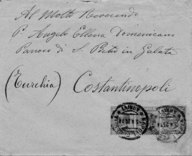 Al Molto Reverendo
P. Angelo Domenicani
Parroco di S. Pietro in Galata
(Turchia) Costantinopoli